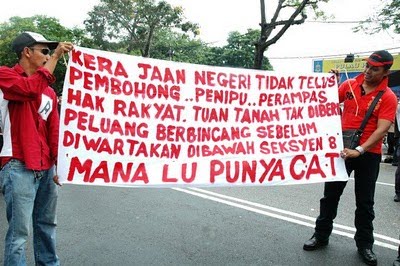 KERAJAAN NEGERI TIDAK TELUS
PEMBOHONG..PENIPU..PERAMPAS
HAK RAKYAT. TUAN TANAH TAK DIBERI
PELUANG BERBINCANG SEBELUM
DIWARTAKAN DIBAWAH SEKSYEN 8
MANA LU PUNYA CAT